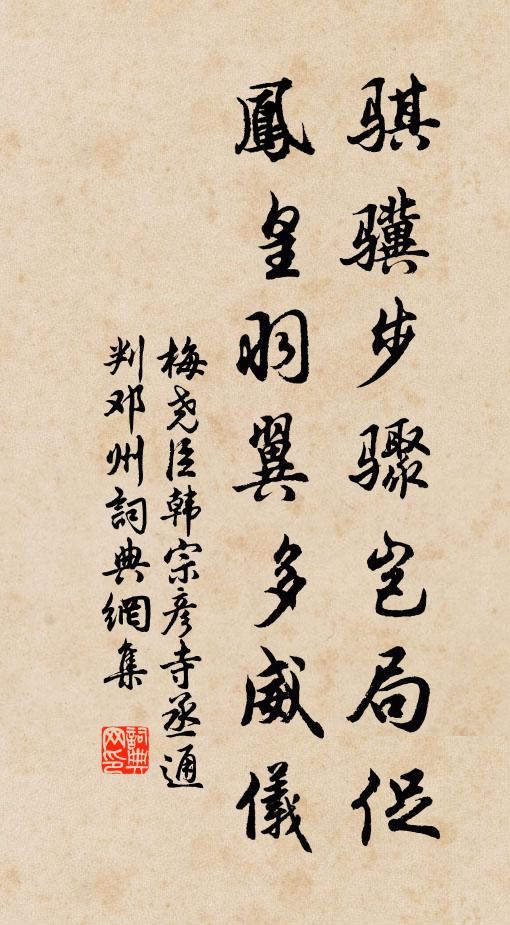 骐骥步骤岂局促
鳳皇羽翼多威儀
梅尧臣韩宗彦寺丞通
判邓州詞典網集
詞典
网印